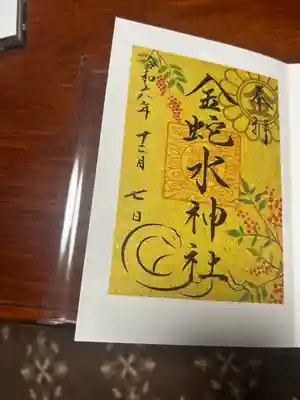 奉拝
金蛇水神社
令和六年 十二月 七日